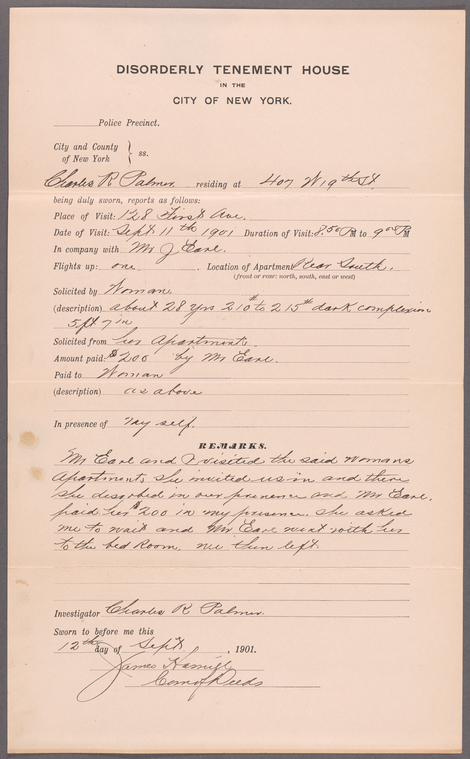 DISORDERLY TENEMENT HOUSE
IN THE
CITY OF NEW YORK.
Police Precinct.
City and County
of New York } ss.
Charles R Palmer residing at 407 W 19th St.
being duly sworn, reports as follows:
Place of Visit: 128 First Ave.
Date of Visit: Sept. 11th 1901 Duration of Visit: 8.50 PM to 9 00 PM
In company with Mr J Earl.
Flights up: one. Location of Apartment Rear South.
(front or rear: north, south, east or west)
Solicited by Woman.
(description) about 28 yrs 210 to 215 dark complexion
5 ft 7 in
Solicited from her Apartments.
Amount paid: $2.00 by Mr Earl.
Paid to Woman
(description) as above
In presence of my self.
REMARKS.
Mr Earl and I visited the said womans
Apartments she invited us in and there
she disrobed in our presence and Mr Earl.
paid her $2.00 in my presence. she asked
me to wait and Mr Earl went with her
to the bed Room. we then left.
Investigator Charles R Palmer
Sworn to before me this
12th day of Sept. , 1901.
James
Com of Deeds